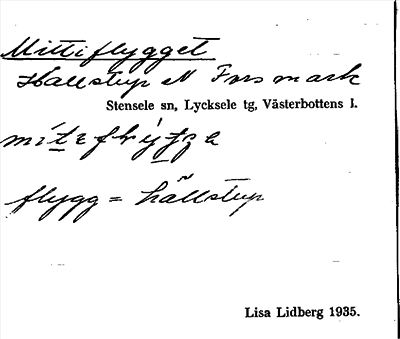 Mittiflygget
Hällstup N Forsmark
Stensele sn, Lycksele tg, Västerbottens l.
flygg = hällstup
Lisa Lidberg 1935.